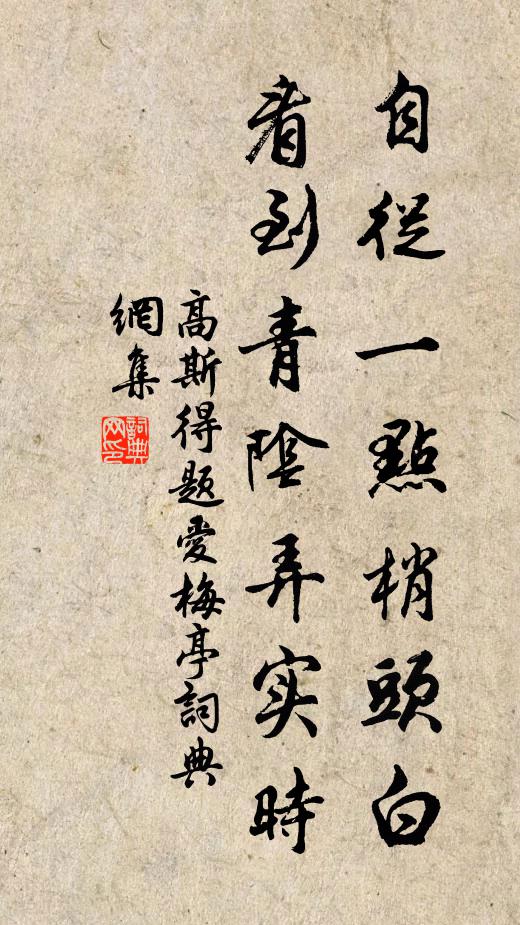 自從一點梢頭白
看到青陰弄实時
高斯得題愛梅亭詞典
網集
詞典
网印